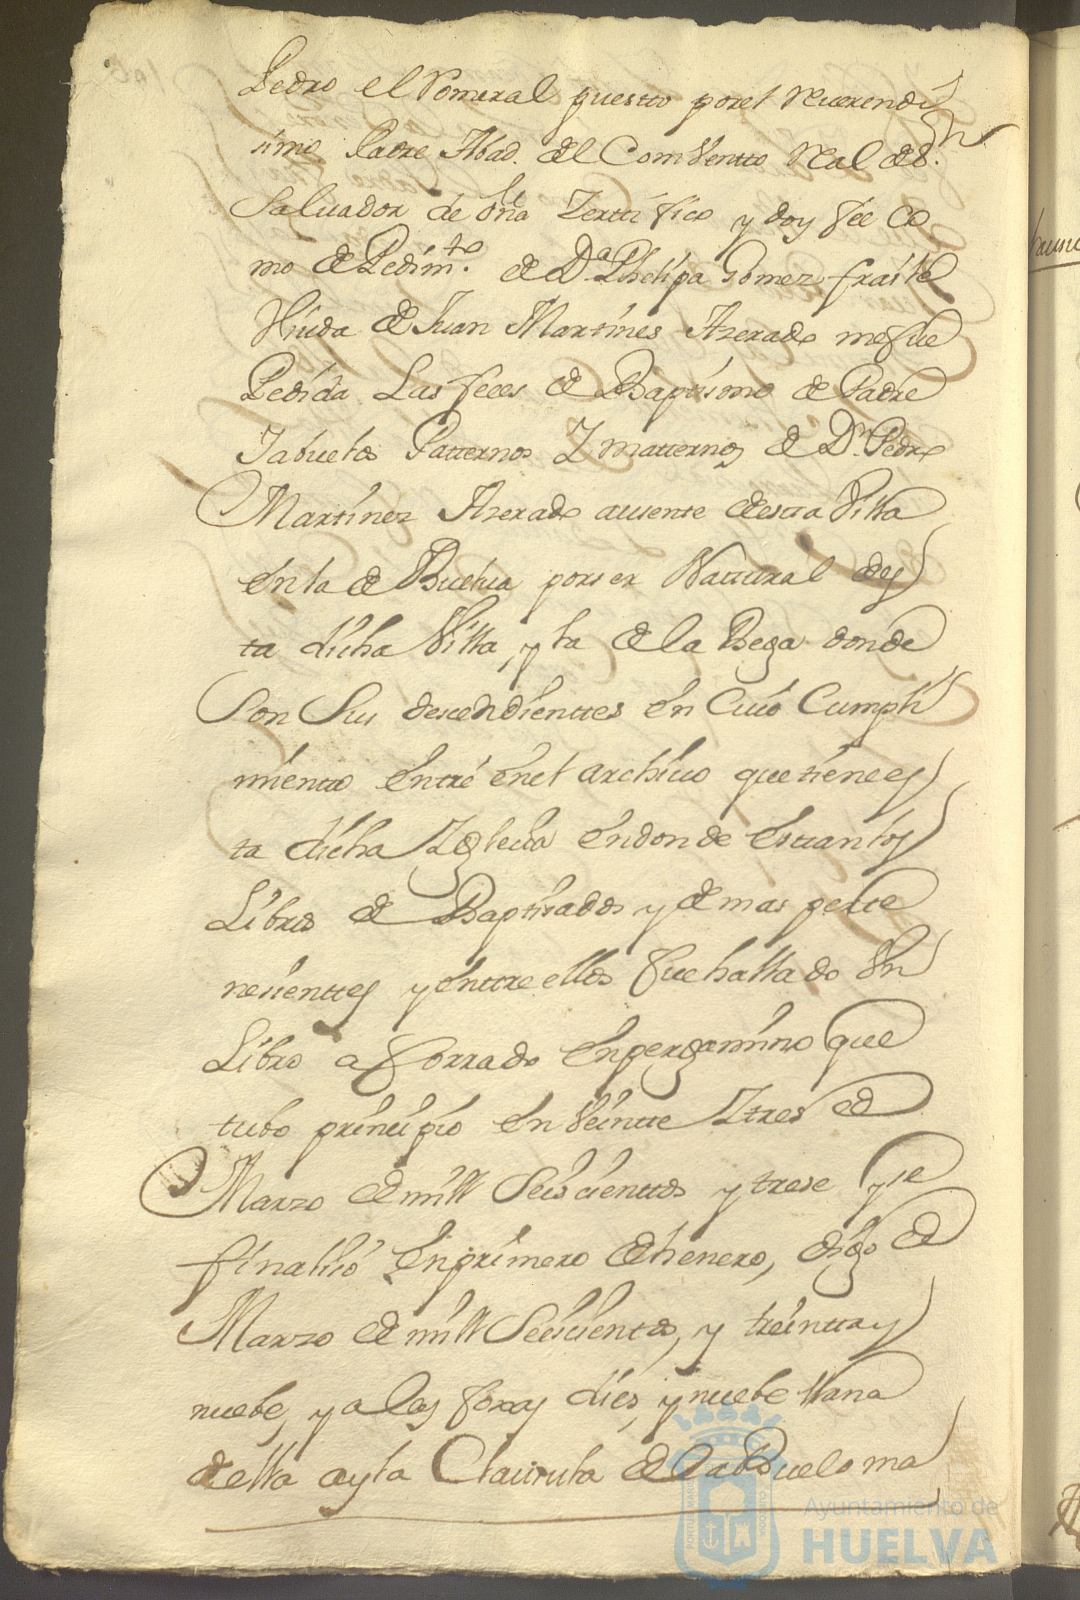 Pedro el Pomeral puesto porel Reuerendi
simo Padre Abad. del Combentto Real de S.n
Saluador de Oña Zerttifico y doy fee Co
mo de Pedim.to de D.a Phelipa Gomez fraile
Viuda de Juan Martines Azerado mefue
Pedida Las feees de Baptismo de Padre
Yabuelos Patternos Y matternos de D.n Pedro
Martinez Azerado ausente destta Villa
en la de Buelua porser Nattural des
ta dicha Villa, y la de la Bega donde
Son Sus desendienttes en Cuio Cumpli
miento entré enel archiuo quetiene es
ta dicha Yglecia endonde esttan los
Libros de Baptisados y de mas perte
nesienttes y enttre ellos fue hallado Vn
Libro aforrado en pergamino que
tubo prinsipio en Veintte Ytres de
Marzo de mill Seiscienttos y trese y se
finalisó en primero de henero, digo de
Marzo de mill Seiscienttos, y treintta y
nuebe, y a las foxas dies, y nuebe llana
della ay la Clausula de la